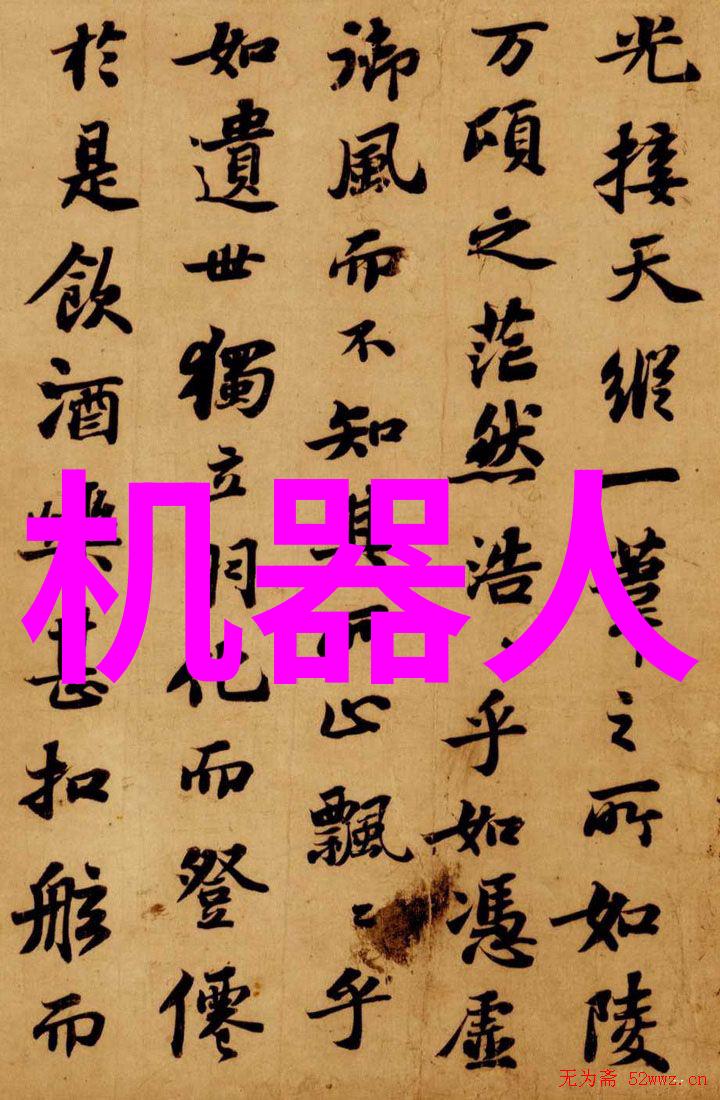 光接天縱一葦之所如陵
万頃之茫然浩〻乎如憑虛
御風而不知其所止飄〻乎
如遺世獨立羽化而登僊
於是飲酒樂甚扣舷而
机器人
无为斋 52wwz.cn